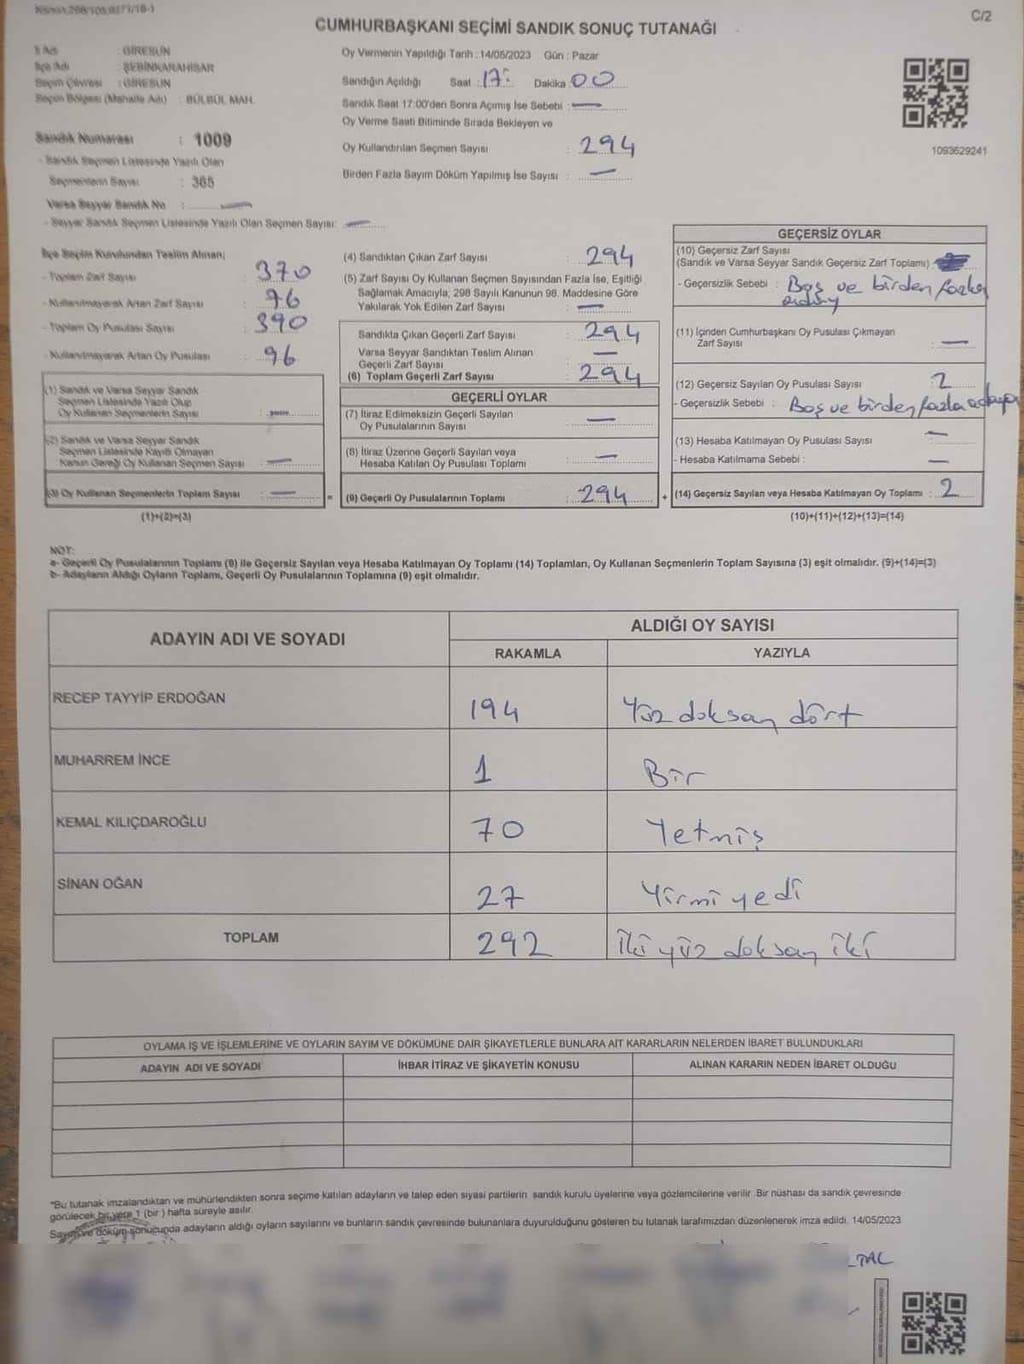 C/2
CUMHURBAŞKANI SEÇİMİ SANDIK SONUÇ TUTANAĞI
İl Adı : GİRESUN
İlçe Adı : ŞEBİNKARAHİSAR
Seçim Çevresi : GİRESUN
Seçim Bölgesi (Mahalle Adı) : BÜLBÜL MAH.
Sandık Numarası : 1009
- Sandık Seçmen Listesinde Yazılı Olan
Seçmenlerin Sayısı : 365
Varsa Seyyar Sandık No :
- Seyyar Sandık Seçmen Listesinde Yazılı Olan Seçmen Sayısı: —
Oy Vermenin Yapıldığı Tarih : 14/05/2023 Gün : Pazar
Sandığın Açıldığı Saat : 17: Dakika 00
Sandık Saat 17:00'den Sonra Açımış İse Sebebi : —
Oy Verme Saati Bitiminde Sırada Bekleyen ve
Oy Kullandırılan Seçmen Sayısı : 294
Birden Fazla Sayım Döküm Yapılmış İse Sayısı : —
1093629241
İlçe Seçim Kurulundan Teslim Alınan;
- Toplam Zarf Sayısı 370
- Kullanılmayarak Artan Zarf Sayısı 76
- Toplam Oy Pusulası Sayısı 390
- Kullanılmayarak Artan Oy Pusulası 96
(1) Sandık ve Varsa Seyyar Sandık
Seçmen Listesinde Yazılı Olup
Oy Kullanan Seçmenlerin Sayısı :
(2) Sandık ve Varsa Seyyar Sandık
Seçmen Listesinde Kayıtlı Olmayan
Kanun Gereği Oy Kullanan Seçmen Sayısı : —
(3) Oy Kullanan Seçmenlerin Toplam Sayısı : — =
(1)+(2)=(3)
(4) Sandıktan Çıkan Zarf Sayısı : 294
(5) Zarf Sayısı Oy Kullanan Seçmen Sayısından Fazla İse, Eşitliği
Sağlamak Amacıyla, 298 Sayılı Kanunun 98. Maddesine Göre
Yakılarak Yok Edilen Zarf Sayısı : —
Sandıkta Çıkan Geçerli Zarf Sayısı : 294
Varsa Seyyar Sandıktan Teslim Alınan
Geçerli Zarf Sayısı : —
(6) Toplam Geçerli Zarf Sayısı : 294
GEÇERLİ OYLAR
(7) İtiraz Edilmeksizin Geçerli Sayılan
Oy Pusulalarının Sayısı : —
(8) İtiraz Üzerine Geçerli Sayılan veya
Hesaba Katılan Oy Pusulası Toplamı : —
(9) Geçerli Oy Pusulalarının Toplamı : 294 +
GEÇERSİZ OYLAR
(10) Geçersiz Zarf Sayısı
(Sandık ve Varsa Seyyar Sandık Geçersiz Zarf Toplamı)
- Geçersizlik Sebebi : Boş ve birden fazla
(11) İçinden Cumhurbaşkanı Oy Pusulası Çıkmayan
Zarf Sayısı : —
(12) Geçersiz Sayılan Oy Pusulası Sayısı : 2
- Geçersizlik Sebebi : Boş ve birden fazla adaya
(13) Hesaba Katılmayan Oy Pusulası Sayısı : —
- Hesaba Katılmama Sebebi : —
(14) Geçersiz Sayılan veya Hesaba Katılmayan Oy Toplamı : 2
(10)+(11)+(12)+(13)=(14)
NOT:
a- Geçerli Oy Pusulalarının Toplamı (9) ile Geçersiz Sayılan veya Hesaba Katılmayan Oy Toplamı (14) Toplamları, Oy Kullanan Seçmenlerin Toplam Sayısına (3) eşit olmalıdır. (9)+(14)=(3)
b- Adayların Aldığı Oyların Toplamı, Geçerli Oy Pusulalarının Toplamına (9) eşit olmalıdır.
ADAYIN ADI VE SOYADI ALDIĞI OY SAYISI
RAKAMLA YAZIYLA
RECEP TAYYİP ERDOĞAN 194 Yüz doksan dört
MUHARREM İNCE 1 Bir
KEMAL KILIÇDAROĞLU 70 Yetmiş
SİNAN OĞAN 27 Yirmi yedi
TOPLAM 292 İki yüz doksan iki
OYLAMA İŞ VE İŞLEMLERİNE VE OYLARIN SAYIM VE DÖKÜMÜNE DAİR ŞİKAYETLERLE BUNLARA AİT KARARLARIN NELERDEN İBARET BULUNDUKLARI
ADAYIN ADI VE SOYADI İHBAR İTİRAZ VE ŞİKAYETİN KONUSU ALINAN KARARIN NEDEN İBARET OLDUĞU
"Bu tutanak imzalandıktan ve mühürlendikten sonra seçime katılan adayların ve talep eden siyasi partilerin sandık kurulu üyelerine veya gözlemcilerine verilir. Bir nüshası da sandık çevresinde
görülecek bir yere 1 (bir) hafta süreyle asılır.
Sayım ve döküm sonucunda adayların aldığı oyların sayılarını ve bunların sandık çevresinde bulunanlara duyurulduğunu gösteren bu tutanak tarafımızdan düzenlenerek imza edildi. 14/05/2023